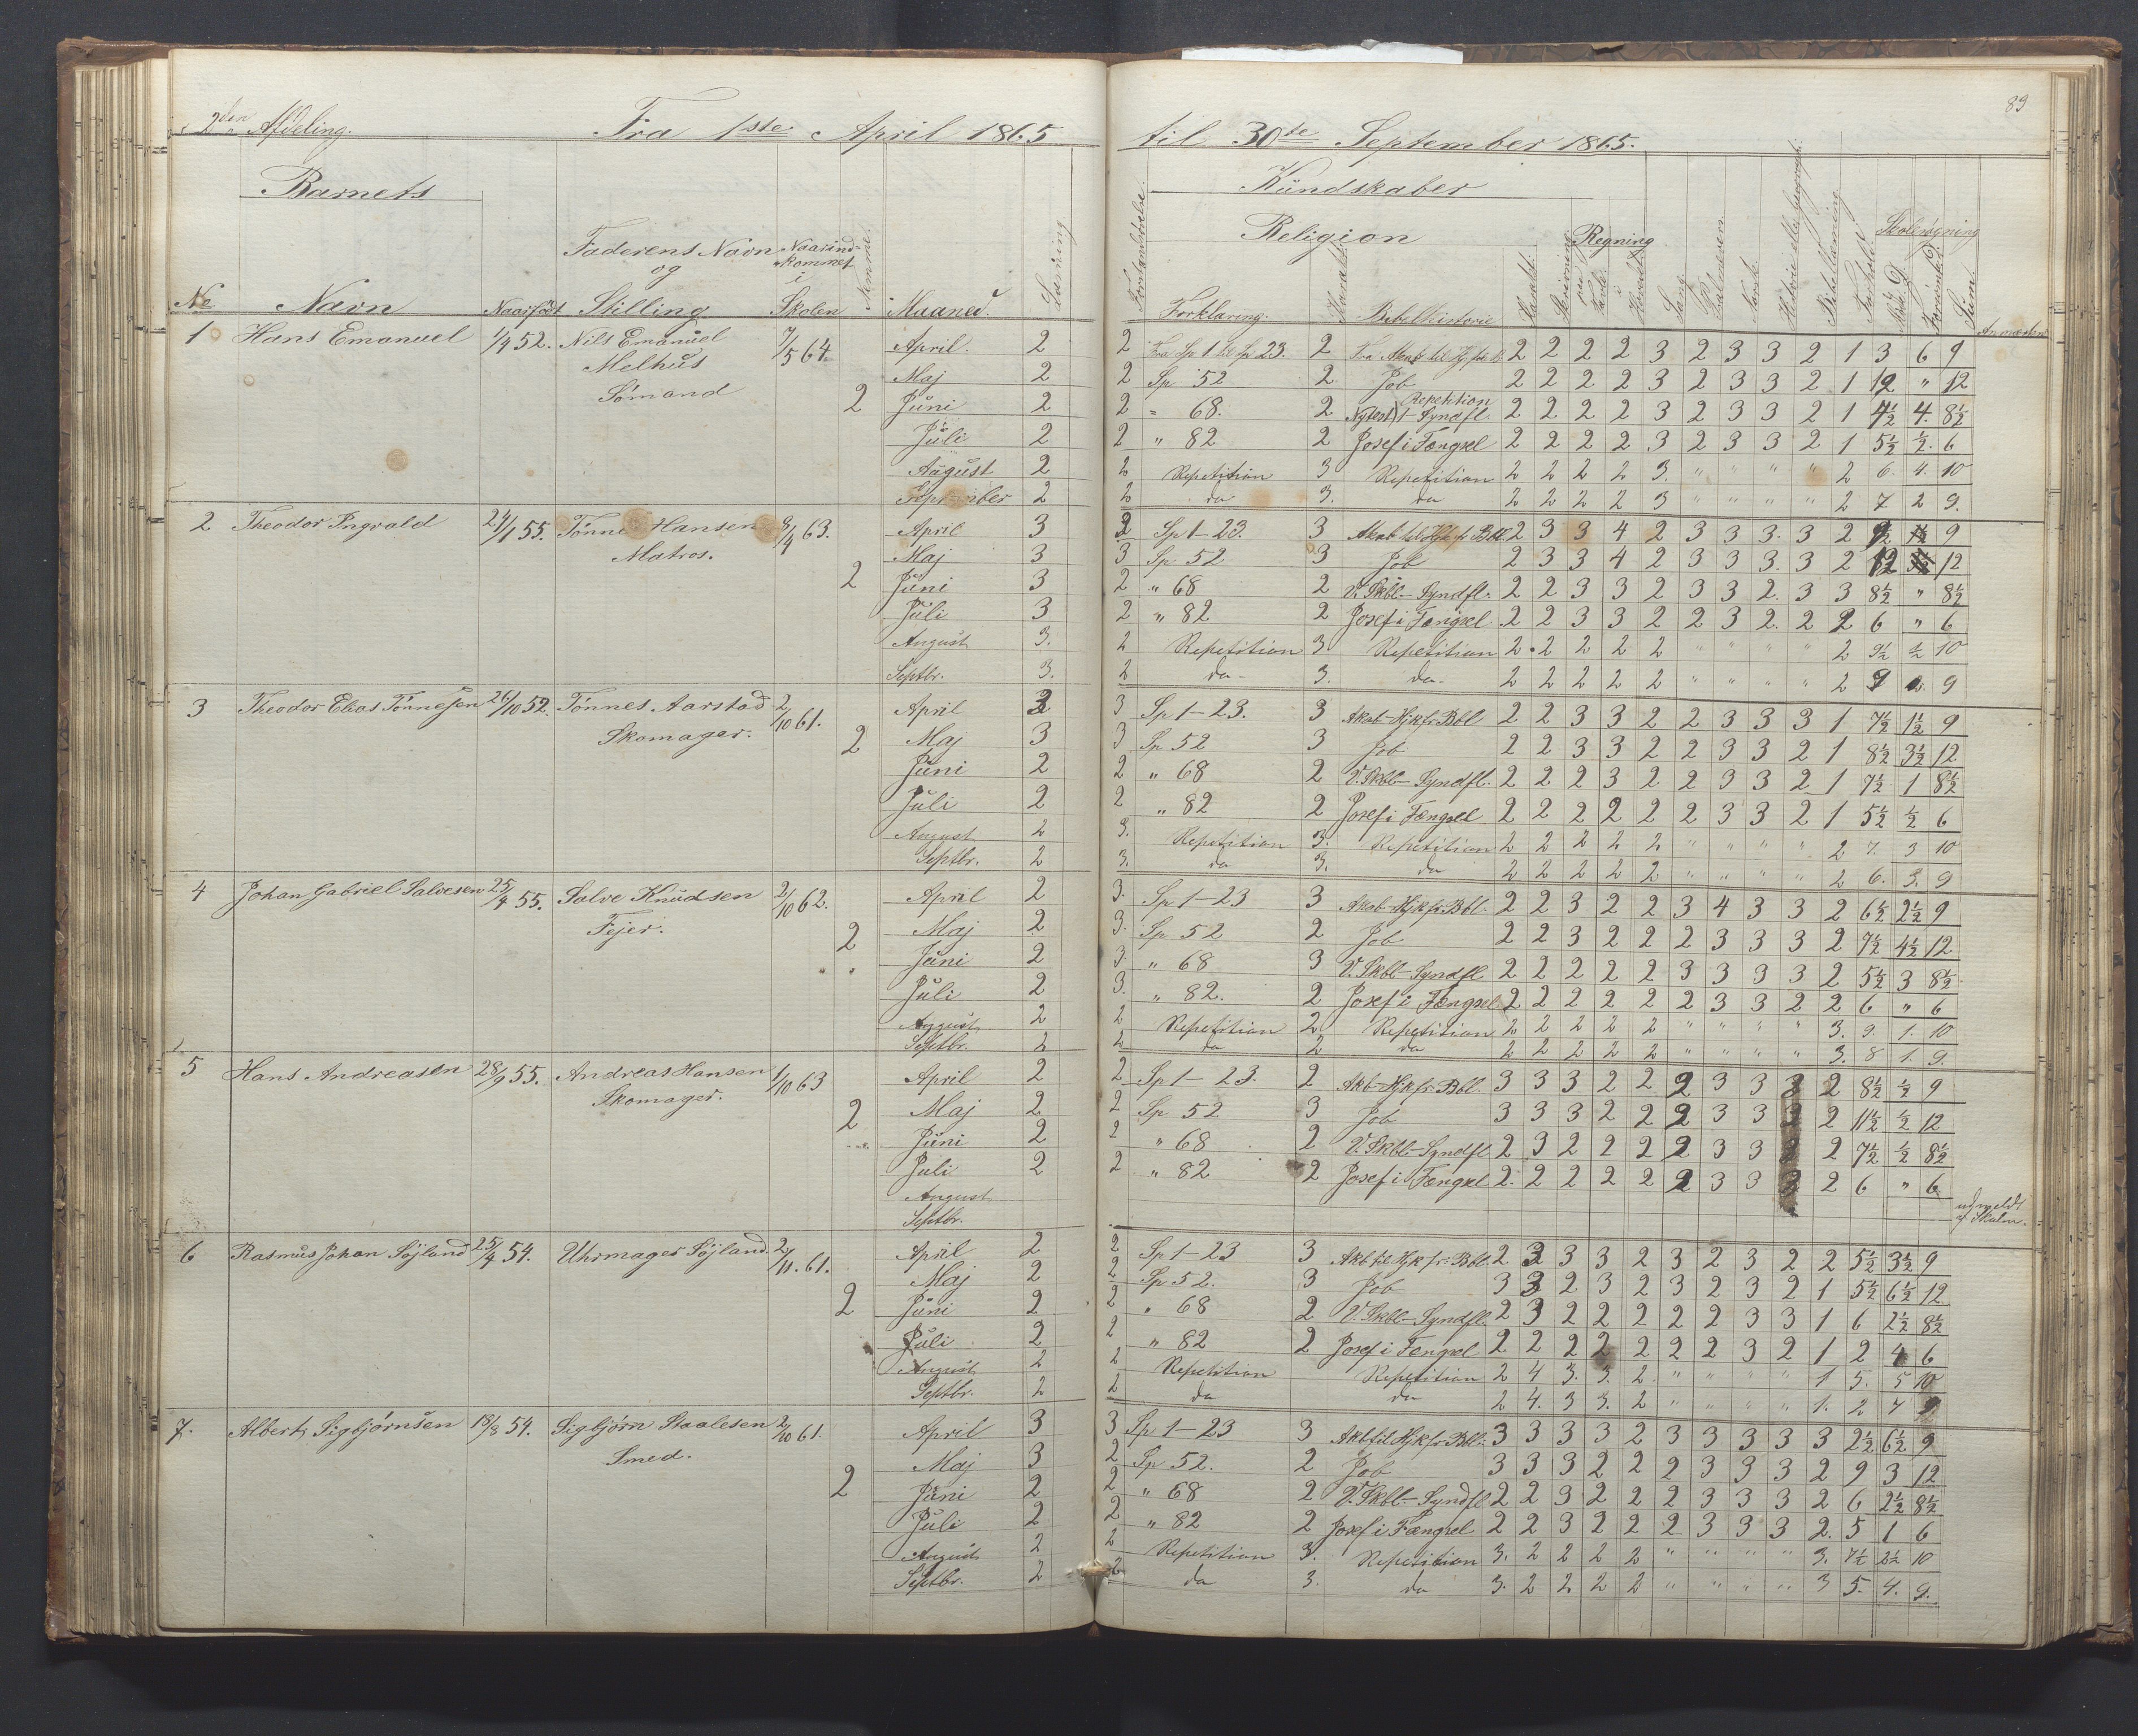 89
2den Afdeling. Fra 1ste April 1865 til 30te September 1865.
Barnets Kundskaber
Religion Regning Skolesøgning
No Navn Naarfødt Faderens Navn og Stilling Naar indkommet i Skolen Nemme. Maaned. Læsning Forstandsøvelse. Forklaring. Karakt. Bibelhistorie Karakt. Skrivning Sang Psalmevers. Norsk. Bibellæsning Forhold. Mødt D. Forsømt D. Sum. Anmærkn
1 Hans Emanuel 1/9 52. Nils Emanuel 7/5 64. April. 2 2 Fra Sp 1 til Sp 23. 2 2 2 2 2 3 2 3 3 2 1 3 6 9
Melhus Maj 2 2 Sp 52 2 Job 2 2 2 2 3 2 3 3 2 1 12 " 12
Sømand 2 Juni 2 2 = 68. 2 Nytest) Repetition 1-Syndfl. 2 2 2 2 3 2 3 3 2 1 4½ 4. 8½
Juli 2 2 " 82 2 Josef i Fængsel 2 2 2 2 3 2 3 3 2 1 5½ ½. 6
August 2 2 Repetition 3 Repetition 2 2 2 2 3. " " " " 2 6. 4. 10
September 2 2 da 3. da 2 2 2 2 3 " " " " 2 7 2 9.
2 Theodor Ingvald 24/1 55. Tønne Hansen 9/4 63. April 3 Sp 1-23. 3 Akab til Hjk fr Bbl 2 3 3 4 2 3 3 3. 3 2 9
Matros. Maj 3 3 Sp 52 3 Job 2 3 3 4 2 3 3 3. 3 2 12 12
2 Juni 3 2 " 68 2 V. Skbl- Syndfl. 2 2 3 3 2 3 3 2. 3 3 8½ " 8½
Juli 3 2 " 82 2 Josef i Fængsel. 2 2 3 3 2 2 3 2. 2 2 6 " 6
August 3. 2 Repetition 3 Repetition 2 2 2 2 2 " " " " 2 9½ ½ 10
Septbr. 3. 2 da- 3. da- 2 2 2 2 2 " " " " 2 9 9
3 Theodor Elias Tønnesen 26/10 52. Tønnes Aarstad 2/10 61. April 3 3 Sp 1-23. 3 Akab-Hjk fr Bbl 2 2 3 3 2 2 3 3 3 1 7½ 1½ 9
Skomager. 2 Maj 3 3 Sp 52 3 Job 2 2 3 3 2 2 3 3 2 1 8½ 3½ 12
Juni 2 2 " 68 2 V. Skbl- Syndfl. 2 2 2 3 2 2 3 3 2 1 7½ 1 8½
Juli 2 2 " 82 2 Josef i Fængsel 2 2 2 2 2 2 3 3 2 1 5½ ½ 6
August 2 3. Repetition 3. Repetition 2 2 2 2 2 " " " " 2 7. 3 10
Septbr. 2 3. da 3. da 2 2 2 2 2 " " " " 2 6. 3. 9
4 Johan Gabriel Salvesen 25/4 55. Salve Knudsen 2/10 62. April 2 3. Sp 1-23 3 Akab-Hjk fr. Bbl. 2 2 3 2 2 3 4 3 3 2 6½ 2½ 9
Fejer. 2 Maj 2 3. Sp 52 2 Job 2 2 3 2 2 2 3 3 3 2 7½ 4½ 12
Juni 2 3. " 68 3 V. Skbl- Syndfl 2 2 2 2 2 3 3 3 3 2 5½ 3 8½
Juli 2 3. " 82. 2 Josef i Fængsel. 2 2 2 2 2 2 3 3 2 2 6 " 6
August 2 2 Repetition 2 Repetition 2 2 2 2 2 " " " " 3. 9. 1. 10
Septbr. 2 2 da 2 da 2 2 2 2 2 " " " " 3. 8 1. 9.
5 Hans Andreasen 28/9 55. Andreas Hansen 1/10 63 April 2 2 Sp 1-23. 2 Akb-Hjk fr. Bbl. 3 3 3 2 2 2 3 3 3 2 8½ ½ 9
Skomager. 2 Maj 2 2 Sp 52 3 Job 3 3 3 2 2 2 3 3 2 2 11½ ½ 12
Juni 2 2 " 68 2 V. Skbl- Syndfl 2 3 2 2 2 2 3 3 2 2 7½ ½ 8½
Juli 2 2 " 82 2 Josef i Fængsel 2. 2 2 2 2 2 3 3 3 2 6 " 6
August
Septbr. udmeldt af Skolen.
6 Rasmus Johan Søjland 25/4 54. Uhrmager Søjland. 2/11. 61. April 2 2 Sp 1-23 3 Akb til Hjk fr. Bbl. 2 3 3 3 2 3 2 3 2 2 5½ 3½ 9
Maj 2 2 Sp 52. 3 Job 3 3 2 3 2 3 2 3 2 1 5½ 6½ 12
2 Juni 2 2 " 68 2 V. Skbl- Syndfl. 2 3 2 2 2 2 2 3 3 1 6 2½ 8½
Juli 2 2 " 82 2 Josef i Fængsel 2 2 2 2 2 2 2 3 2 1 2 4 6
August 2 2 Repetition Repetition 2 4 3. 3. 2. " " " " 1 5. 5 10
Septbr. 2 2 da da 2 4. 3 3. 2 " " " " 1. 2 7 9
7. Albert Sigbjørnsen 18/8 54. Sigbjørn Staalesen 2/10 61. April 3 3 Sp 1-23 3 Akb til Hjk fr. Bbl. 3 3 3 3 2 3 3 3 3 3 2½ 6½ 9
Smed. Maj 3 2 Sp 52. 2 Job 3 3 3 2 2 2 3 3 3 2 9 3 12
2 Juni 2 2 " 68 2 V. Skbl- Syndfl 2 2 3 2 2 2 3 3 3 2 6 2½ 8½
Juli 2 2 " 82 2 Josef i Fængsel 2 2 3 2 2 2 3 3 3 2. 5 1 6
August 2 2 Repetition 3. Repetition 3. 2 2 2 2 " " " " 3. 7½ 2½ 10
Septbr. 2 2 da 3. da 3. 2 2 2 2 " " " " 3 5. 4. 9.